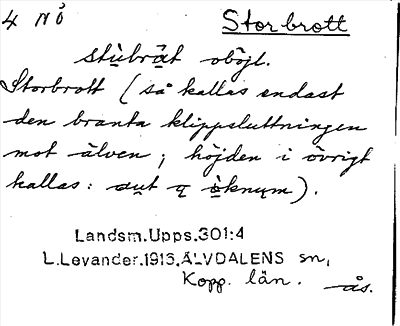 4 NÖ Storbrott
stùbrät oböjl.
Storbrott (så kallas endast
den branta klippsluttningen
mot älven; höjden i övrigt
kallas: aut ɋ òknum).
Landsm.Upps.301:4
L.Levander.1915.ÄLVDALENS sn,
Kopp. län.
ås.